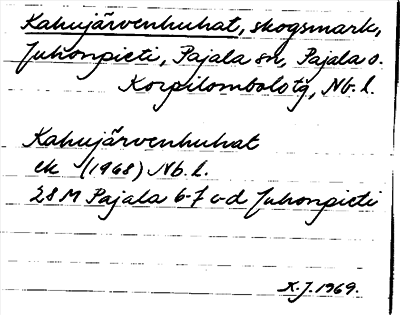 Kahujärvenhuhat, skogsmark,
Juhonpieti, Pajala sn, Pajala o.
Korpilombolo tg, Nb. l.
Kahujärvenhuhat
ek (1968) Nb. l.
28 M Pajala 6-7 c-d Juhonpieti
X.J. 1969.